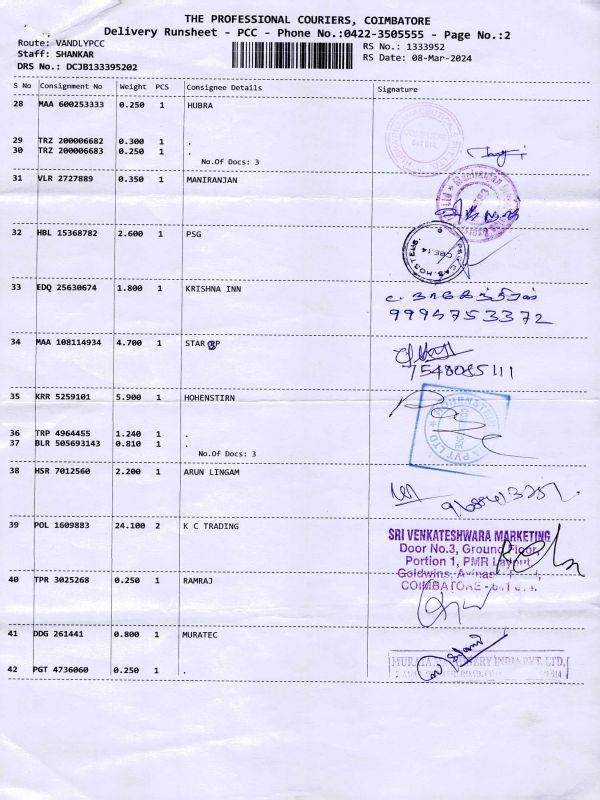 THE PROFESSIONAL COURIERS, COIMBATORE
Delivery Runsheet - PCC - Phone No.:0422-3505555 - Page No.:2
Route: VANDLYPCC
RS No.: 1333952
Staff: SHANKAR
RS Date: 08-Mar-2024
DRS No.: DCJB133395202
S No Consignment No Weight PCS Consignee Details Signature
28 MAA 600253333 0.250 1 HUBRA
29 TRZ 200006682 0.300 1 .
30 TRZ 200006683 0.250 1 .
No.Of Docs: 3
31 VLR 2727889 0.350 1 MANIRANJAN
32 HBL 15368782 2.600 1 PSG
33 EDQ 25630674 1.800 1 KRISHNA INN
9994753372
34 MAA 108114934 4.700 1 STAR
7548085111
35 KRR 5259101 5.900 1 HOHENSTIRN
36 TRP 4964455 1.240 1 .
37 BLR 505693143 0.810 1 .
No.Of Docs: 3
38 HSR 7012560 2.200 1 ARUN LINGAM
39 POL 1609883 24.100 2 K C TRADING
SRI VENKATESHWARA MARKETING
Door No.3, Ground Floor,
Portion 1, PMR Layout,
Goldwins,
COIMBATORE -
40 TPR 3025268 0.250 1 RAMRAJ
41 DDG 261441 0.800 1 MURATEC
42 PGT 4736060 0.250 1 .